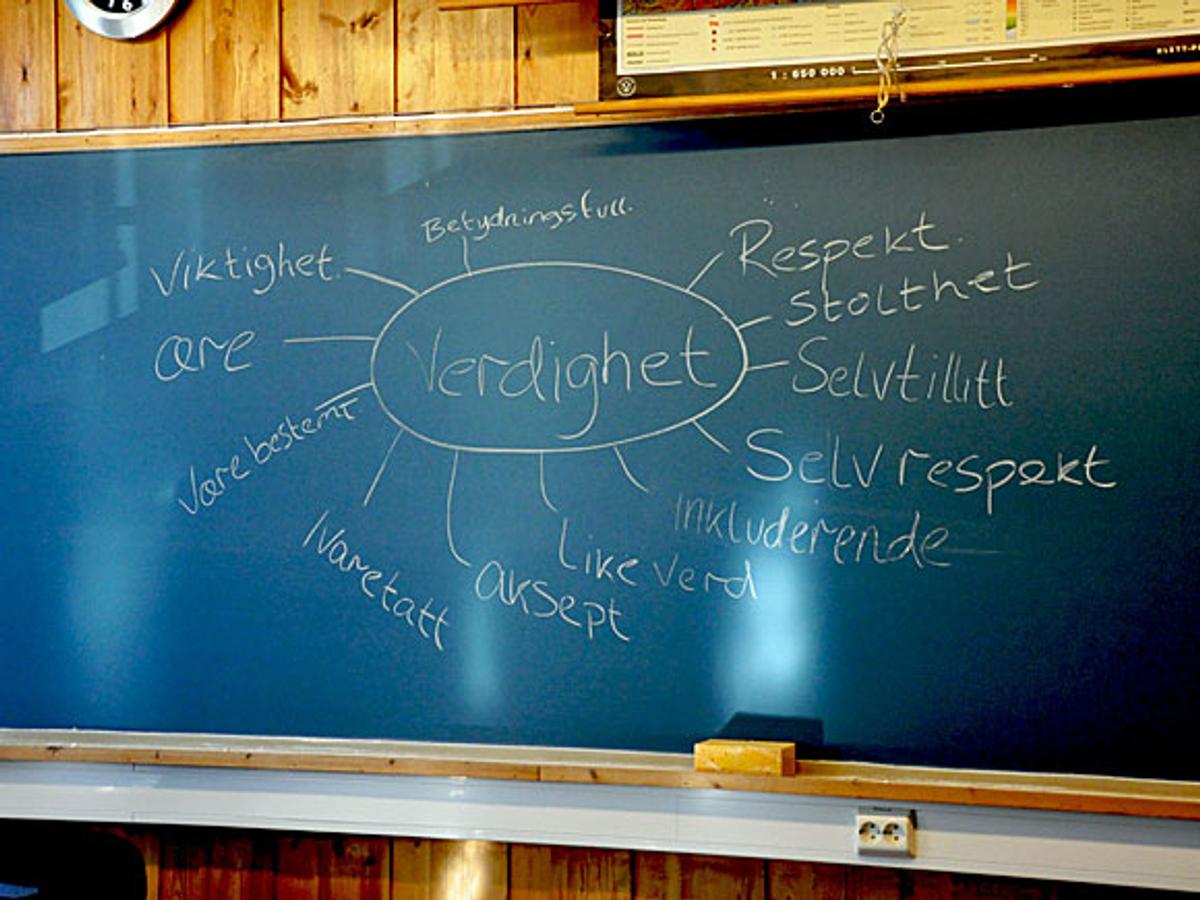 16
1 : 650 000
Betydningsfull.
Viktighet.
Respekt.
Stolthet
ære
Verdighet
Selvtillitt
Være bestemt
Selv respekt
Inkluderende
Naretatt
Like verd
aksept